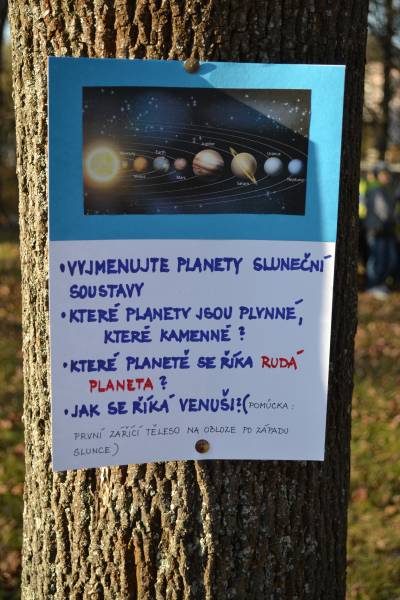 Jupiter
Earth
Uranus
Mars
Saturn
Neptune
• VYJMENUJTE PLANETY SLUNEČNÍ
SOUSTAVY
• KTERÉ PLANETY JSOU PLYNNÉ,
KTERÉ KAMENNÉ?
• KTERÉ PLANETĚ SE ŘÍKA RUDÁ
PLANETA?
• JAK SE ŘÍKÁ VENUŠI?(POMŮCKA:
PRVNÍ ZÁŘÍCÍ TĚLESO NA OBLOZE PO ZÁPADU
SLUNCE)